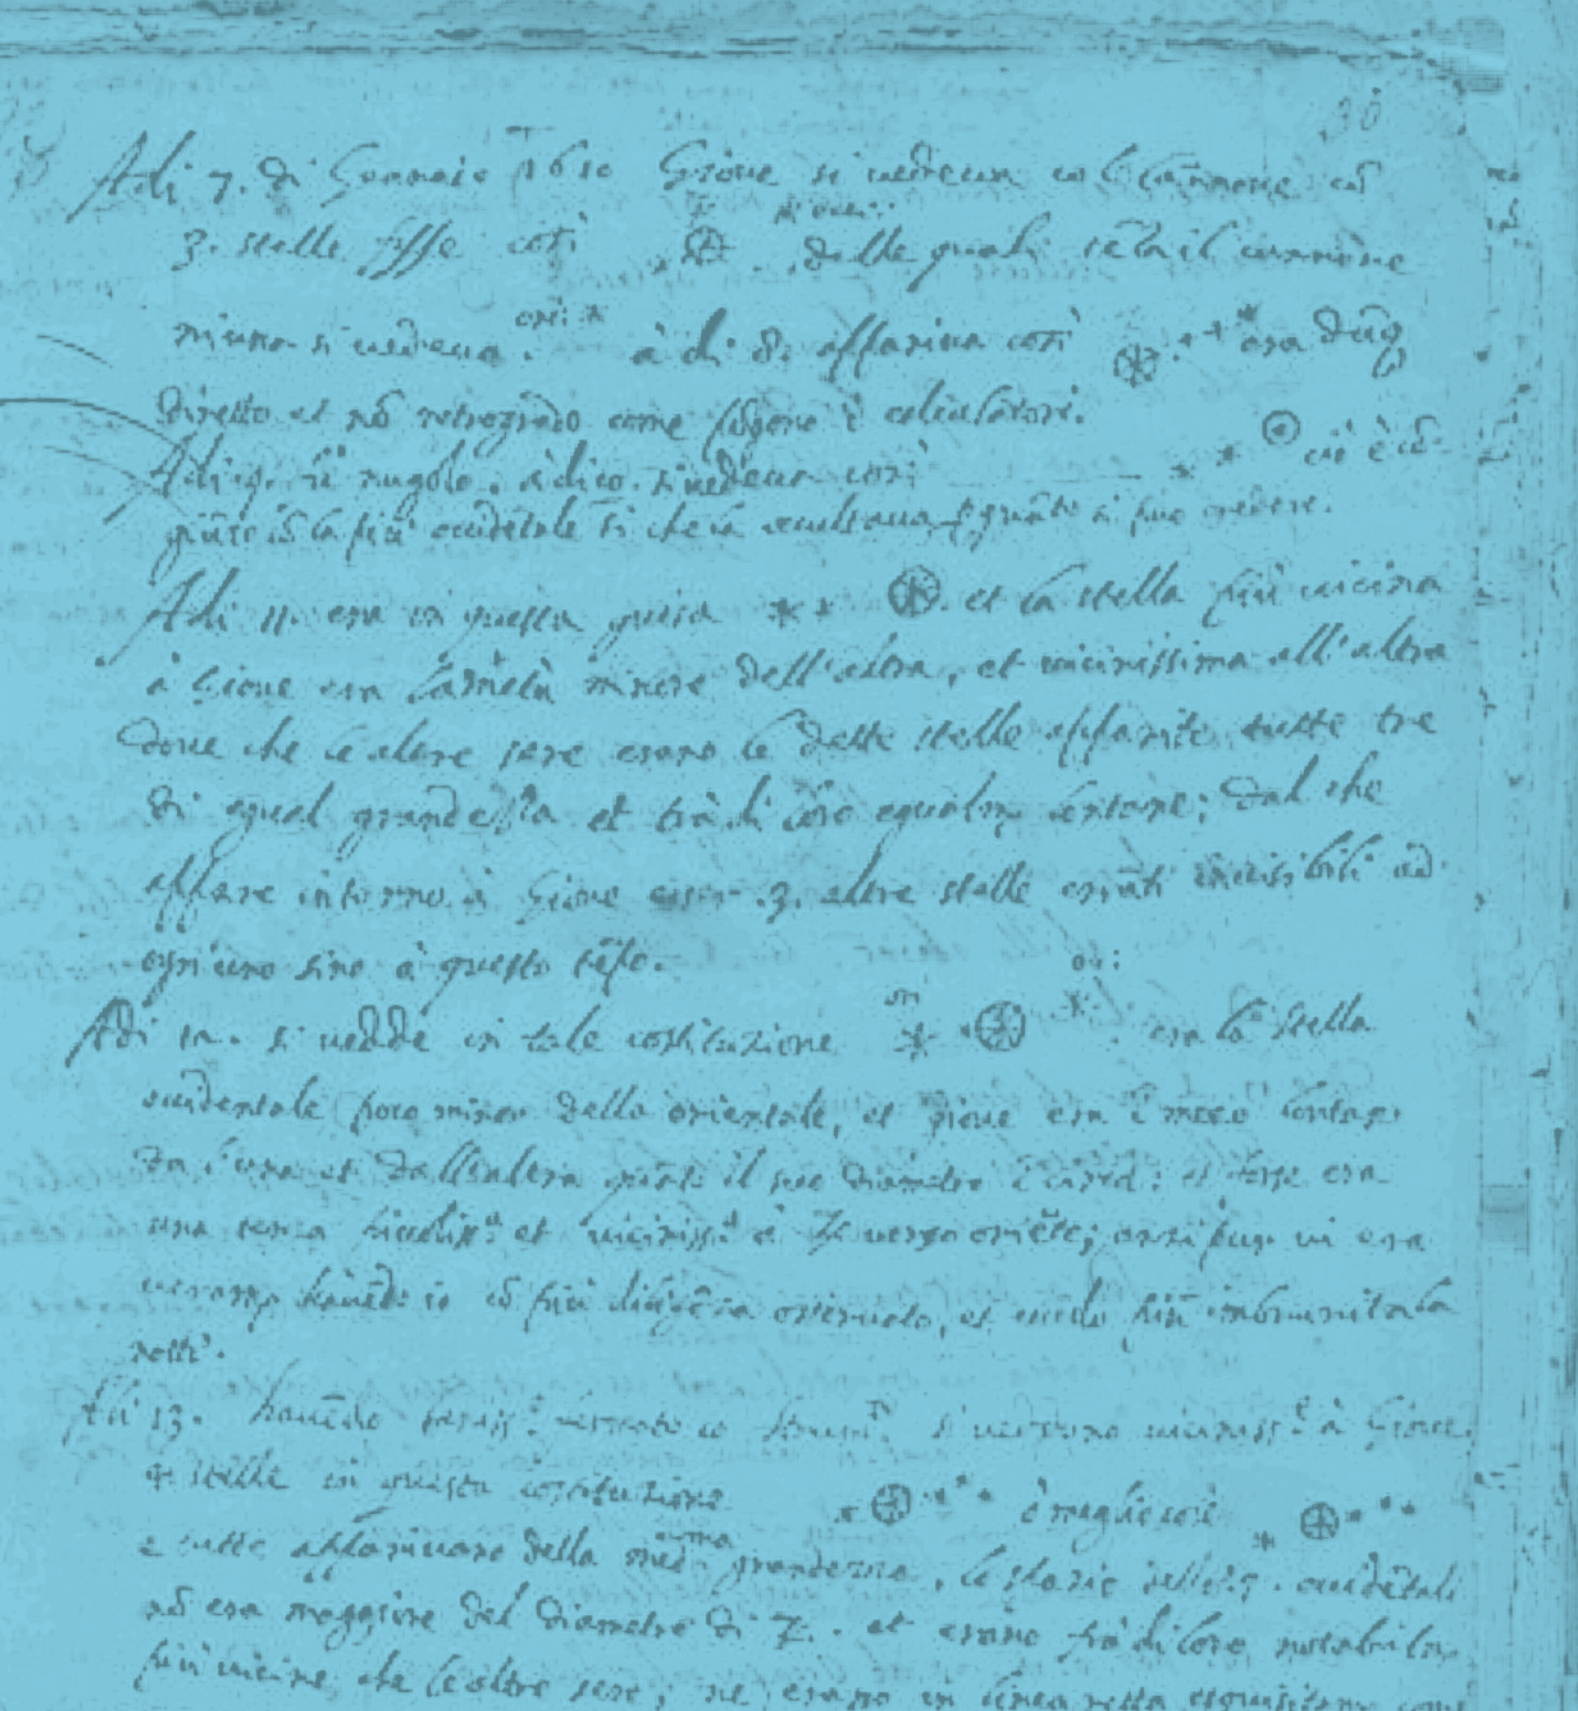 30
Adi 7. di Gennaio 1610 Giove si vedeva col Cannone cō
3. stelle fisse così delle quali sēza il cannone
niuna si vedeva. à dì 8. appariva così era dūq
diretto et nō retrogrado come pōgono i calculatori.
Adi 9. fù nugolo. à dì 10. si vedeva così cioè cō
giūto cō la più occidētale sì che la occultava p quāto si può credere.
Adi 11. era in questa guisa et la stella più vicina
à Giove era la metà minore dell'altra, et vicinissima all'altra
dove che le altre sere erano le dette stelle apparite tutte tre
di egual grandezza et trà di loro egualm. lontane; dal che
appare intorno à Giove esser .3. altre stelle erranti invisibili ad
ogn'uno sino à questo tēpo.
Adi 12. si vedde in tale costituzione era la stella
occidentale poco minor della orientale, et giove era ī mezo lontan
da l'una et dall'altra quāto il suo diametro ī circa: et forse era
una terza picciliss.ª et viciniss.ª à ♃ verso oriēte; anzi pur vi era
veram. havēdo io cō più diligēza osservato, et sēdo più imbrunita la
notte.
Adi 13. havēdo fermato lo si vedevano viciniss.e à Giove
4. stelle in questa costituzione ò meglio così
e tutte apparivano della med.ma grandezza, lo spazio delle 3. occidētali
nō era maggiore del diametro di ♃. et erano frà di loro notabilm.
più vicine che le altre sere; ne erano in linea retta esquisitam. come